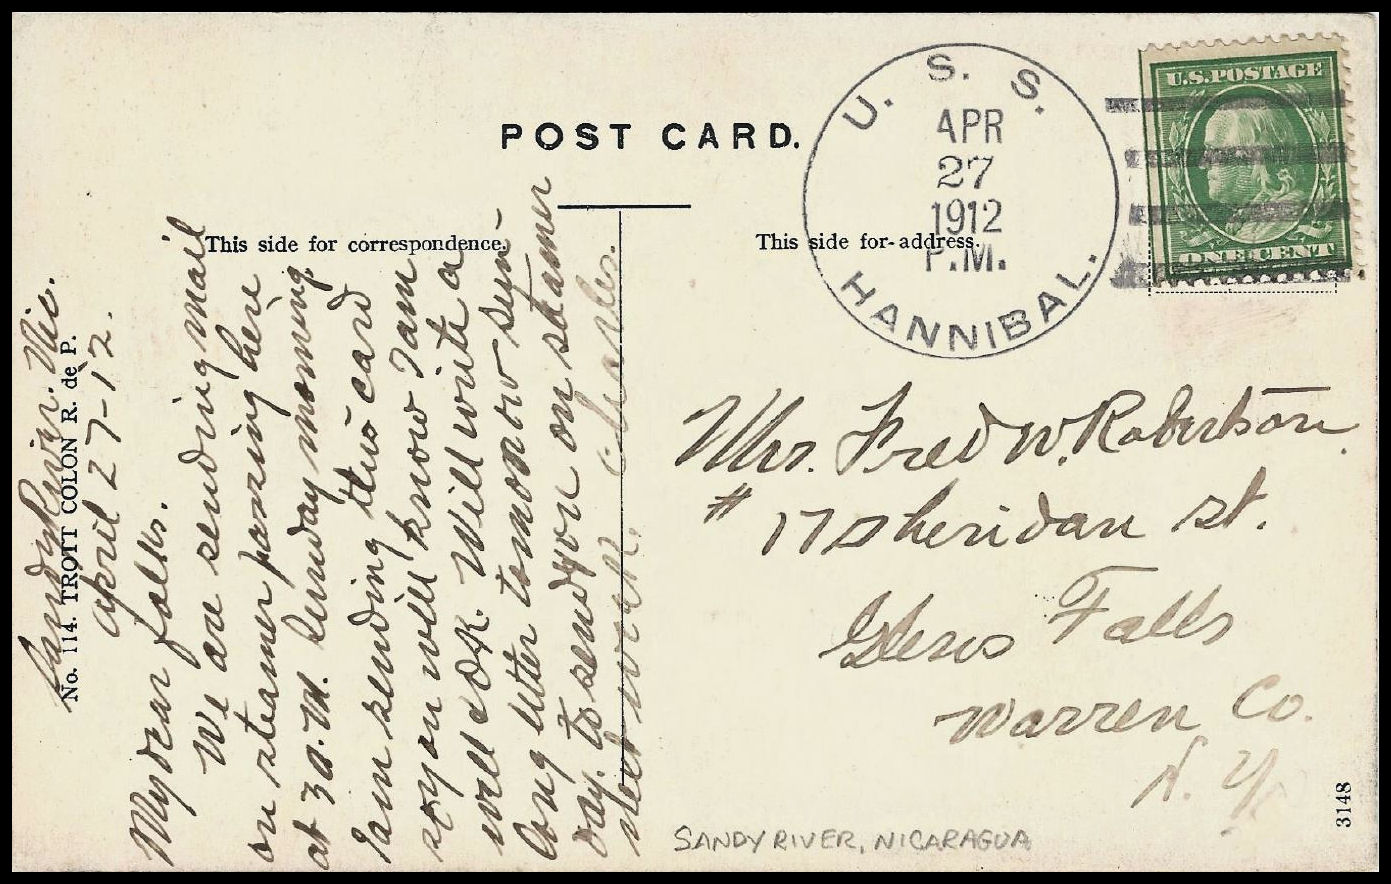 POST CARD.
This side for correspondence.
This side for address.
U. S. S.
HANNIBAL.
APR
27
1912
P.M.
U.S. POSTAGE
ONE CENT
No. 114. TROTT COLON R. de P.
Sandy River. Nic.
April 27-12.
My dear folks.
We are sending mail
on steamer passing here
at 3 a.m. Sunday morning.
I am sending this card
so you will know I am
well & OK. Will write a
long letter tomorrow Sun
day. to send you on steamer
next week. Charles.
Mrs. Fred W. Robertson
# 17 Sheridan St.
Glens Falls
Warren Co.
N. Y.
SANDY RIVER, NICARAGUA
3148